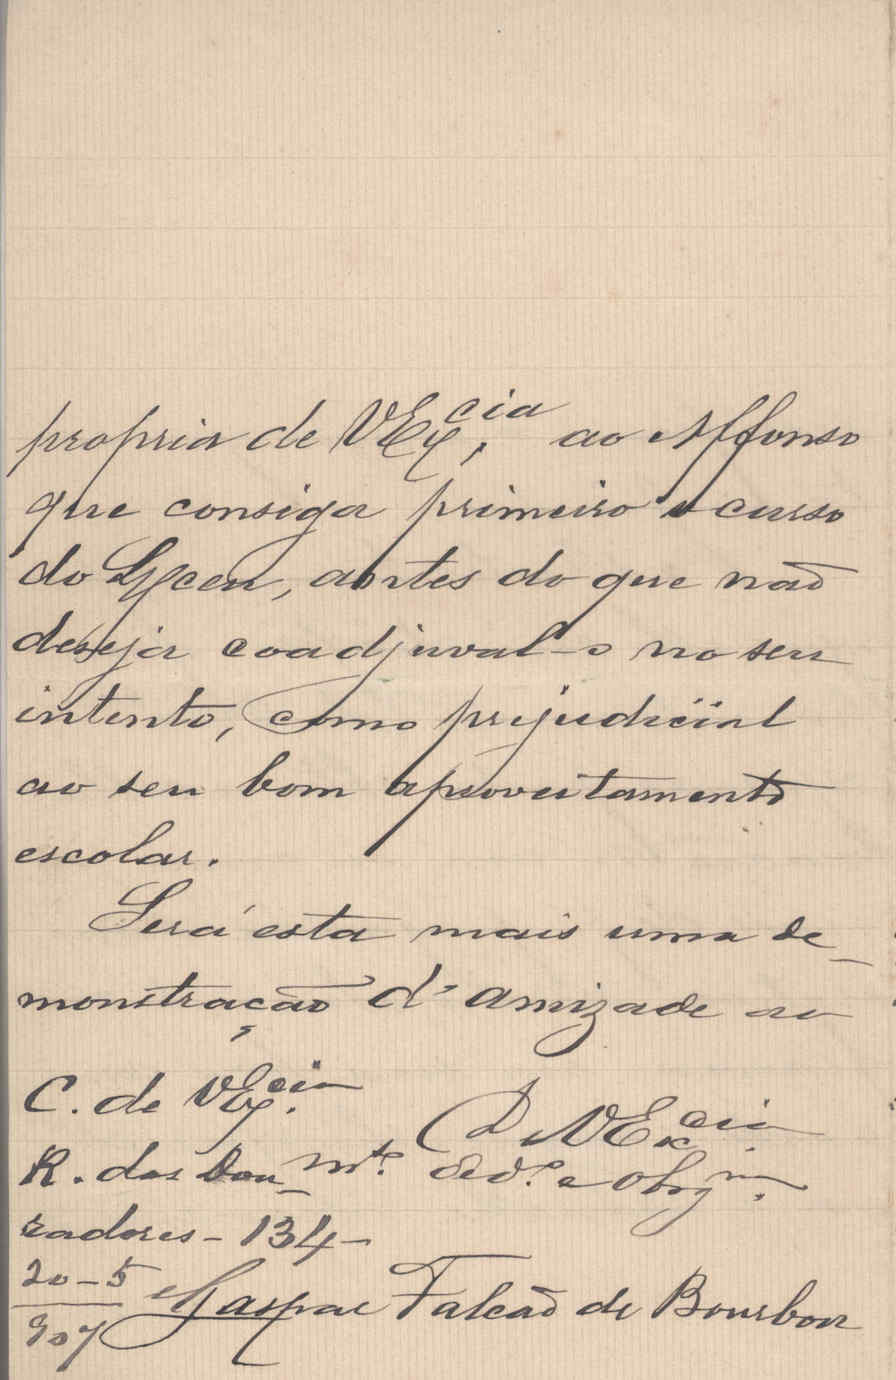 propria de VEx,cia ao Affonso
que consiga primeiro o curso
do Lyceu, antes do que não
deseja coadjuval-o no seu
intento, como prejudicial
ao seu bom aproveitamento
escolar.
Será esta mais uma de-
monstração d'amizade ao
C. de VEx.cia
De VEx.cia
R. dos Dou-
mto. Dedo. e Obrgmo.
radores - 134 -
20-5
907
Gaspar Falcão de Bourbon